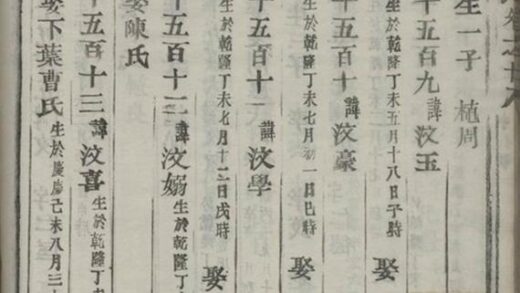 卷之十八
生一子 植周
十五百九 諱汶玉
生於乾隆丁未五月十八日子時 娶
十五百十 諱汶豪
生於乾隆丁未七月初一日巳時 娶
十五百十一 諱汶學
生於乾隆丁未七月十二日戌時 娶
十五百十二 諱汶嫋 生於乾隆丁
娶陳氏
十五百十三 諱汶喜 生於乾隆丁
娶下葉曹氏 生於嘉慶己未八月三